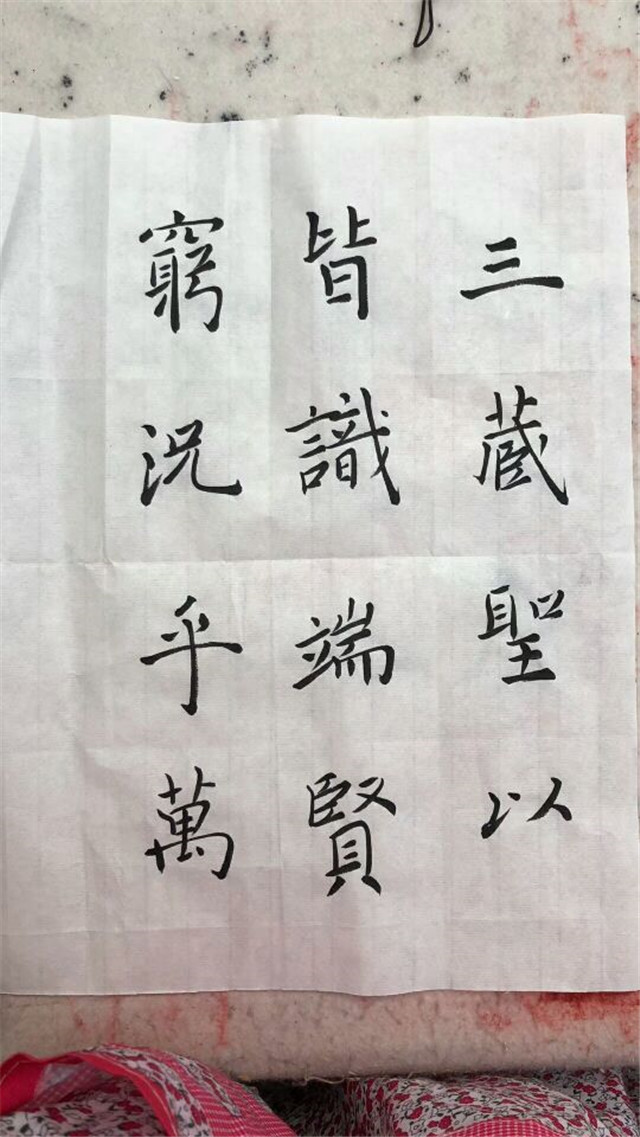 三蔵聖以
皆識端賢
窮況乎萬